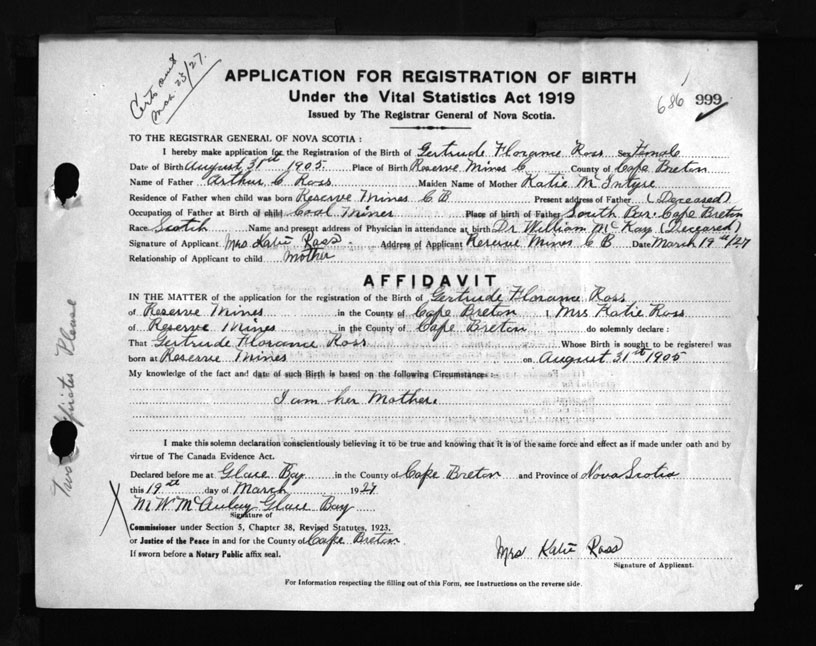 Certs sent
Mar 23/27.
APPLICATION FOR REGISTRATION OF BIRTH
Under the Vital Statistics Act 1919
Issued by The Registrar General of Nova Scotia.
686
999
TO THE REGISTRAR GENERAL OF NOVA SCOTIA:
I hereby make application for the Registration of the Birth of Gertrude Florance Ross Sex Female
Date of Birth August 31st 1905. Place of Birth Reserve Mines C County of Cape Breton
Name of Father Arthur C Ross Maiden Name of Mother Katie McIntyre
Residence of Father when child was born Reserve Mines C B Present address of Father (Deceased)
Occupation of Father at Birth of child Coal Miner Place of birth of Father South Bar. Cape Breton
Race Scotch Name and present address of Physician in attendance at birth Dr William McKay (Deceased)
Signature of Applicant Mrs Katie Ross Address of Applicant Reserve Mines C B Date March 19th/27
Relationship of Applicant to child mother
AFFIDAVIT
IN THE MATTER of the application for the registration of the Birth of Gertrude Florance Ross
of Reserve Mines in the County of Cape Breton I Mrs Katie Ross
of Reserve Mines in the County of Cape Breton do solemnly declare:
That Gertrude Florance Ross Whose Birth is sought to be registered was
born at Reserve Mines on August 31st 1905
My knowledge of the fact and date of such Birth is based on the following Circumstances:-
I am her Mother.
I make this solemn declaration conscientiously believing it to be true and knowing that it is of the same force and effect as if made under oath and by
virtue of The Canada Evidence Act.
Declared before me at Glace Bay in the County of Cape Breton and Province of Nova Scotia
this 19th day of March 1927
M. W. McAulay Glace Bay
Signature of
Commissioner under Section 5, Chapter 38, Revised Statutes, 1923,
or Justice of the Peace in and for the County of Cape Breton
If sworn before a Notary Public affix seal.
Mrs Katie Ross
Signature of Applicant.
For Information respecting the filling out of this Form, see Instructions on the reverse side.
Two Please